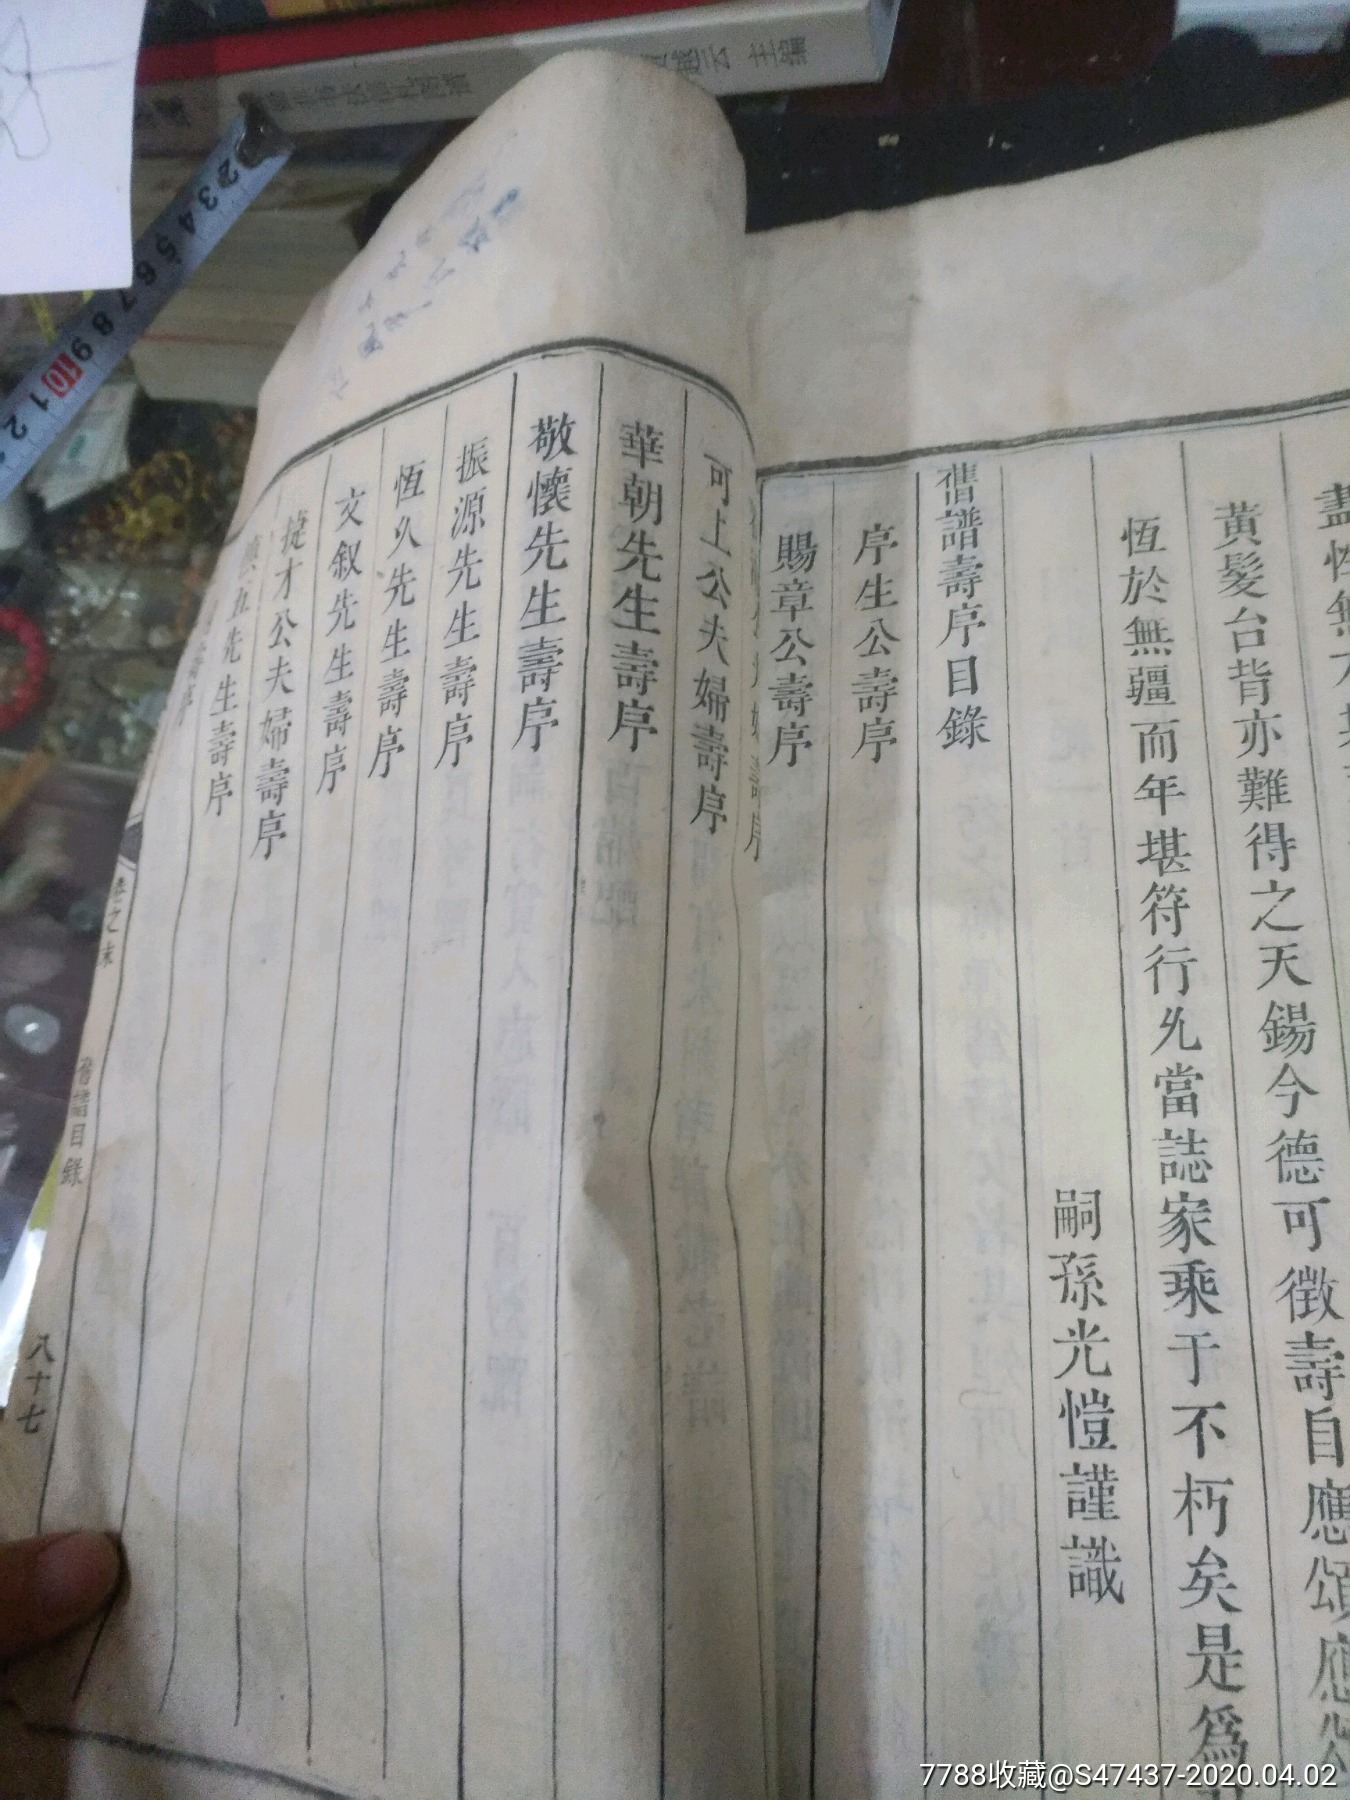 黃髮台背亦難得之天錫今德可徵壽自應頌應
恆於無疆而年堪符行尤當誌家乘于不朽矣是爲
嗣孫光愷謹識
舊譜壽序目錄
序生公壽序
賜章公壽序
可上公夫婦壽序
華朝先生壽序
敬懷先生壽序
振源先生壽序
恆久先生壽序
文叙先生壽序
捷才公夫婦壽序
五先生壽序
卷之末
舊譜目錄
八十七
主編
2 3 4 5 6 7 8 9 10 1 2
7788收藏@S47437-2020.04.02